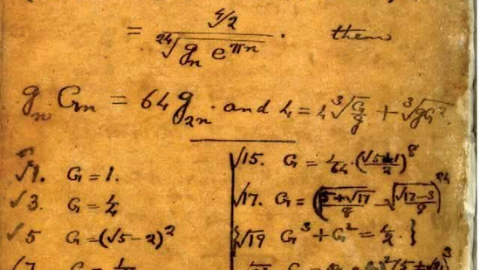 = ∜2 / ²⁴√(gₙ e^πn) . then
gₙ Gₙ = 64 g₂ₙ . and 4 = 4 ∛(G/g) + ∛(gG²).
√1. G = 1.
√3. G = 1/4
√5 G = (√5 - 2)²
√7. G =
√15. G = 1/64 ((√5-1)/2)⁸
√17. G = (√((5+√17)/8) - √((√17-3)/8))²⁴
{√19 G³ + G² =